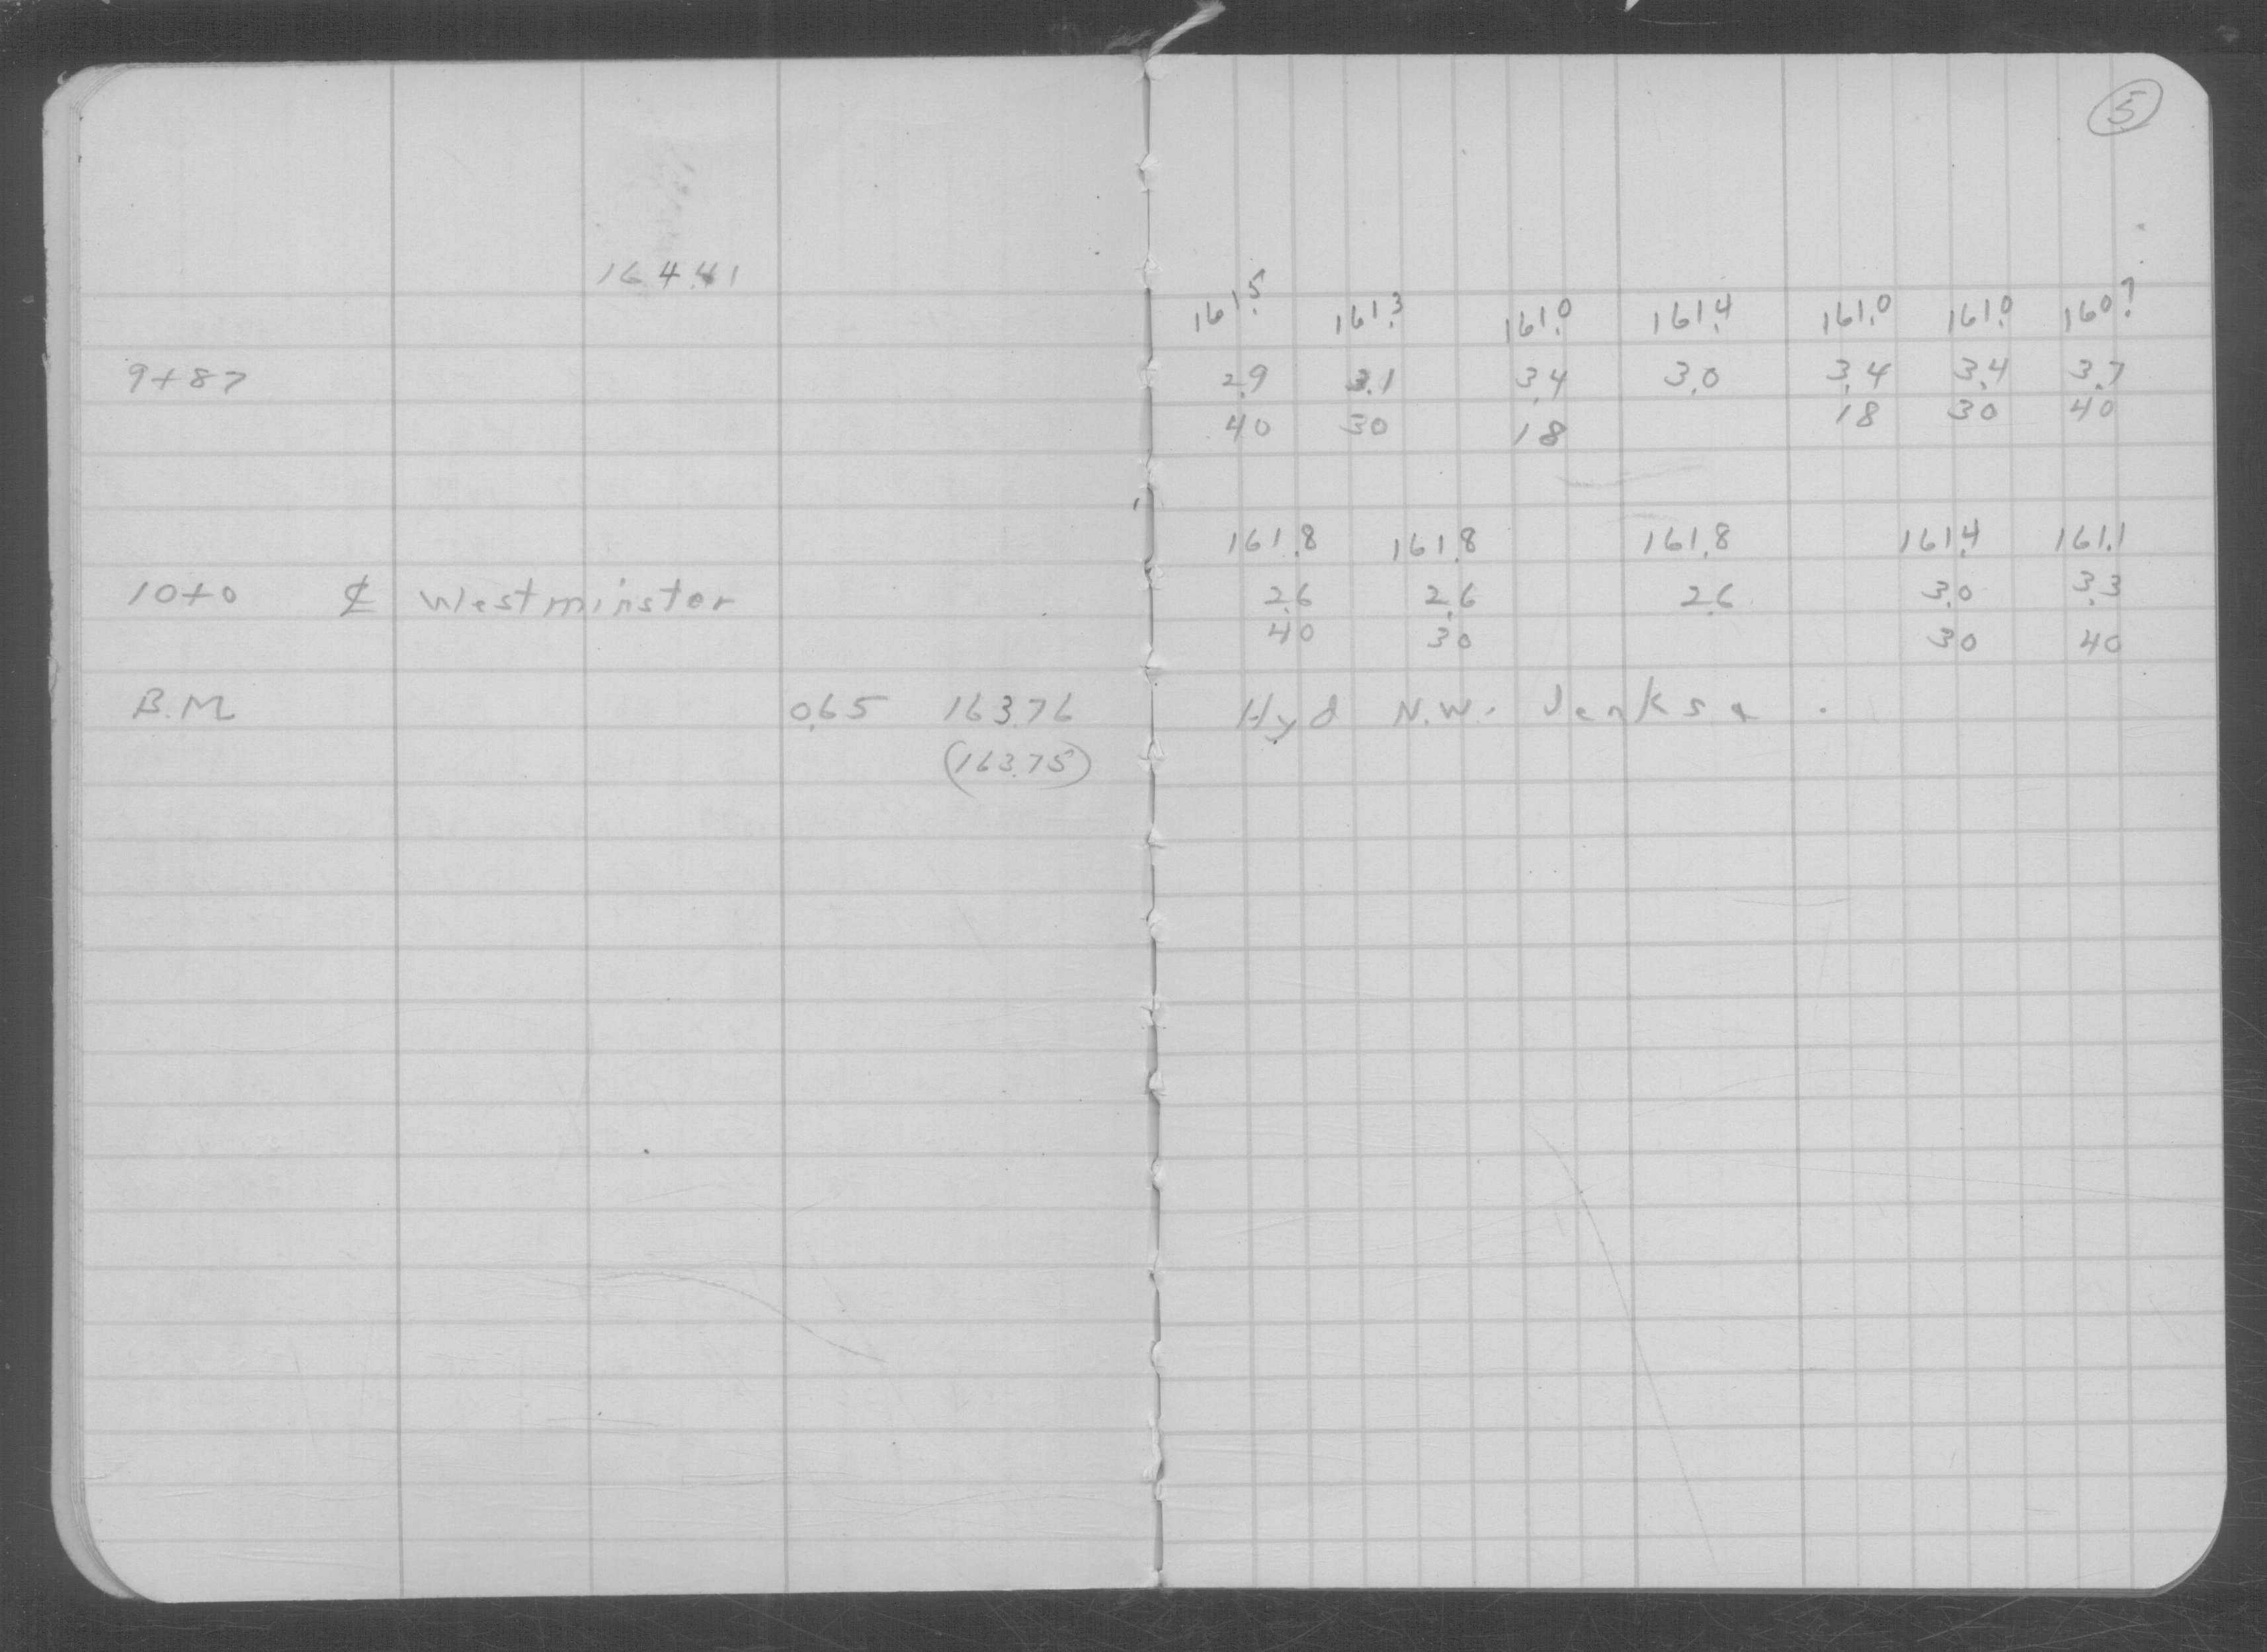 5
164.41
161.5 161.3 161.0 161.4 161.0 161.0 160.7
9+87 2.9 3.1 3.4 3.0 3.4 3.4 3.7
40 30 18 18 30 40
161.8 161.8 161.8 161.4 161.1
10+0 ℄ Westminster 2.6 2.6 2.6 3.0 3.3
40 30 30 40
B.M 0.65 163.76 Hyd N.W.
(163.75)